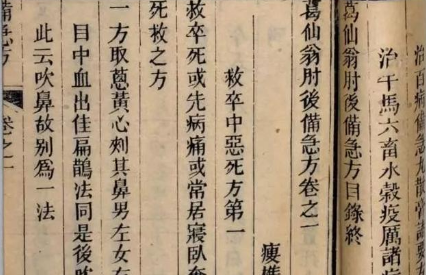 治百病備急丸散膏諸要方
治牛馬六畜水穀疫厲諸病
葛仙翁肘後備急方目錄終
葛仙翁肘後備急方卷之一
瘦樵
救卒中惡死方第一
救卒死或先病痛或常居寢臥奄
死救之方
一方取葱黃心刺其鼻男左女右
目中血出佳扁鵲法同是後
此云吹鼻故別為一法
備急方 卷之一